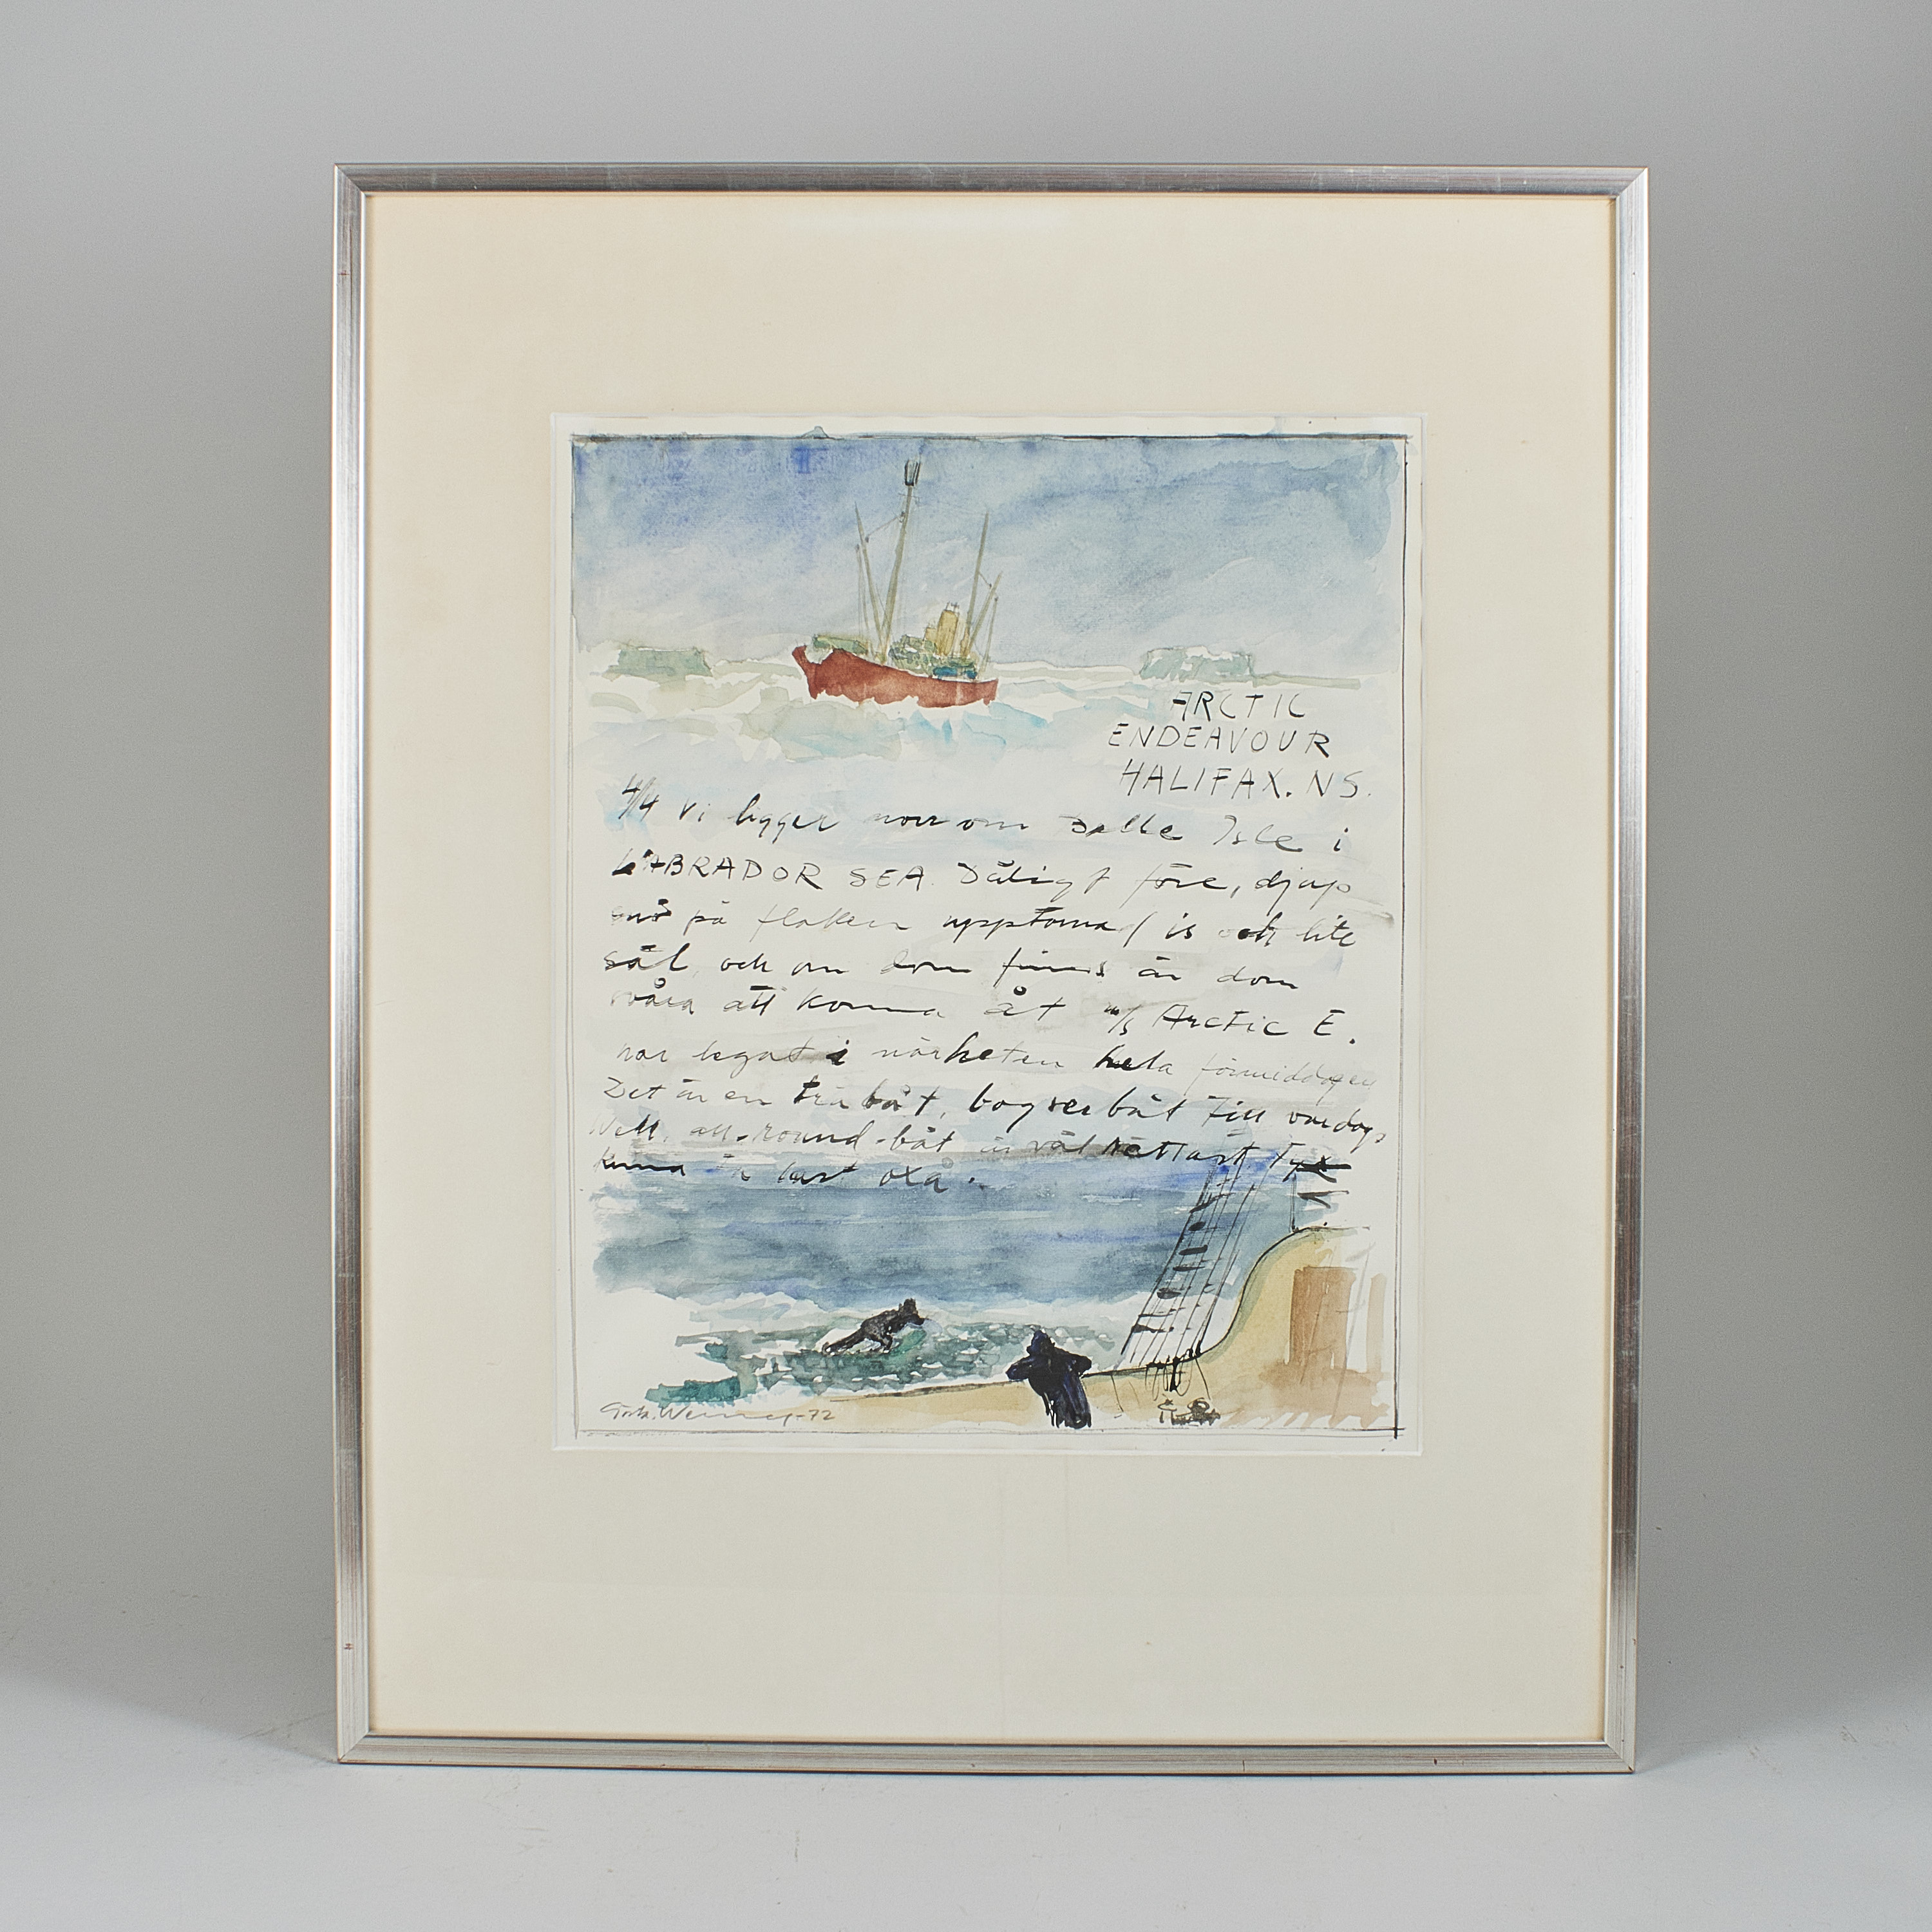 ARCTIC
ENDEAVOUR
HALIFAX. NS.
4/4 Vi ligger norr om Belle Isle i
LABRADOR SEA. Dåligt före, djup
snö på flaken is och lite
säl, och om dom finns är dom
svåra att komma åt m/s Arctic E.
har legat i närheten hela förmiddagen
Det är en träbåt, bogserbåt till vardags
Well, all-round-båt är väl rättast
oxå.
Gösta Werner -72